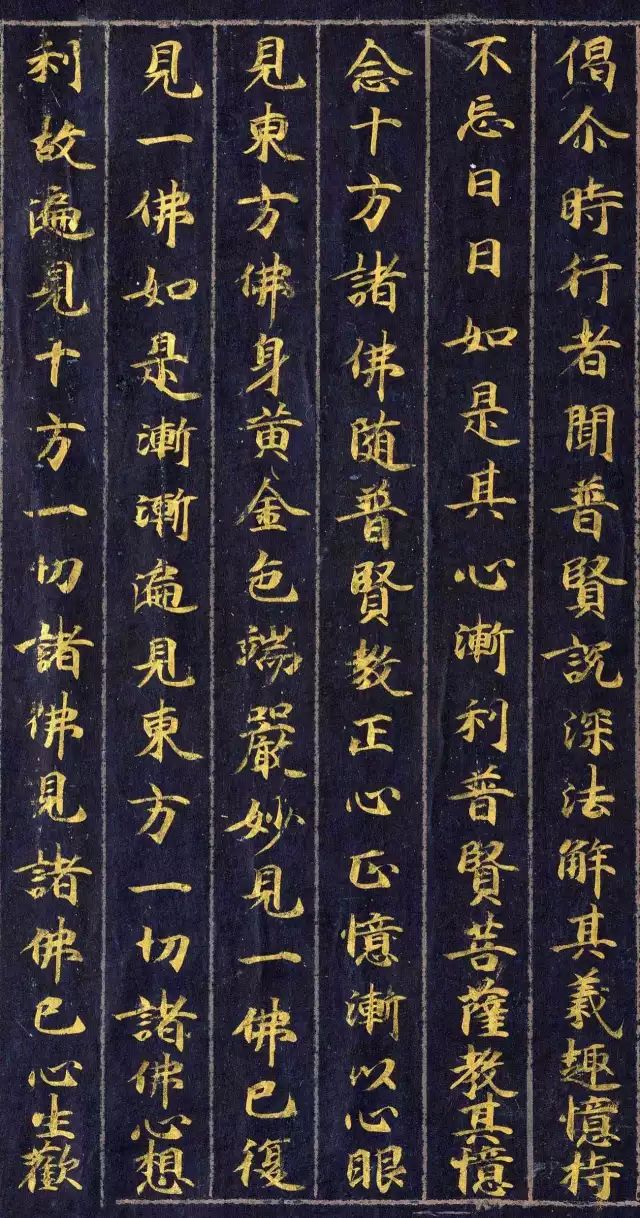 偈尒時行者聞普賢說深法解其義趣憶持
不忘日日如是其心漸利普賢菩薩教其憶
念十方諸佛随普賢教正心正憶漸以心眼
見東方佛身黄金色端嚴妙見一佛已復
見一佛如是漸漸遍見東方一切諸佛心想
利故遍見十方一切諸佛見諸佛已心生歡